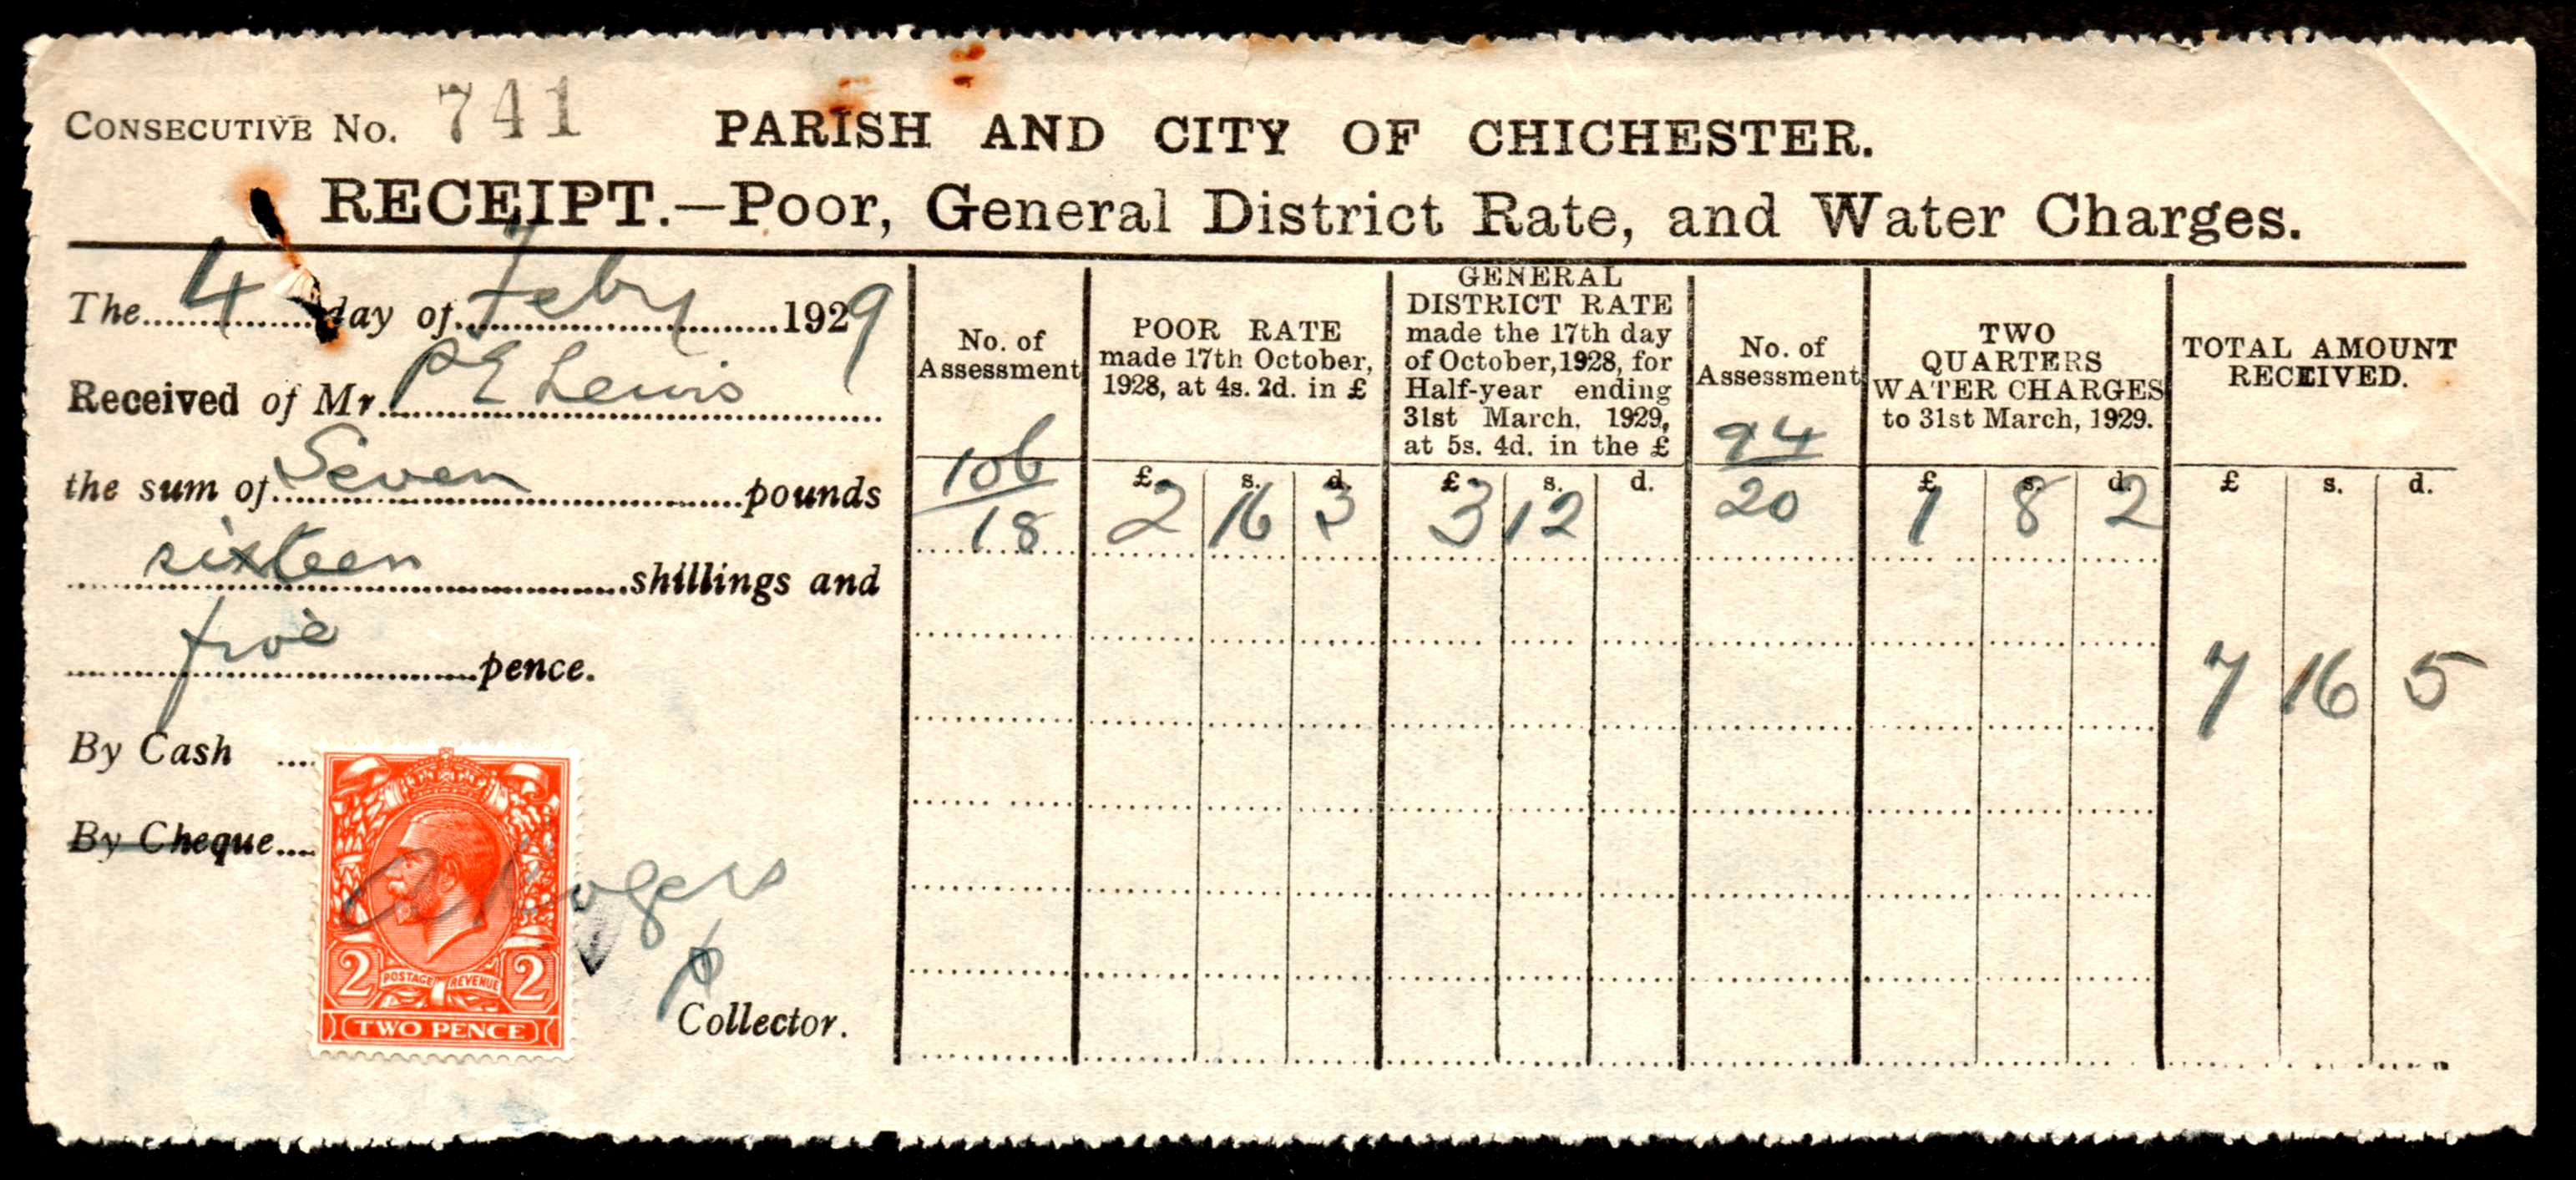 CONSECUTIVE No. 741
PARISH AND CITY OF CHICHESTER.
RECEIPT.—Poor, General District Rate, and Water Charges.
The 4 day of Feby 1929
Received of Mr. P E Lewis
the sum of Seven pounds
sixteen shillings and
five pence.
By Cash
By Cheque
A Rogers
Collector.
POSTAGE REVENUE
2 2
TWO PENCE
No. of
Assessment
106
18
POOR RATE
made 17th October,
1928, at 4s. 2d. in £
£ s. d.
2 16 3
GENERAL
DISTRICT RATE
made the 17th day
of October, 1928, for
Half-year ending
31st March, 1929,
at 5s. 4d. in the £
£ s. d.
3 12
No. of
Assessment
94
20
TWO
QUARTERS
WATER CHARGES
to 31st March, 1929.
£ s. d.
1 8 2
TOTAL AMOUNT
RECEIVED.
£ s. d.
7 16 5